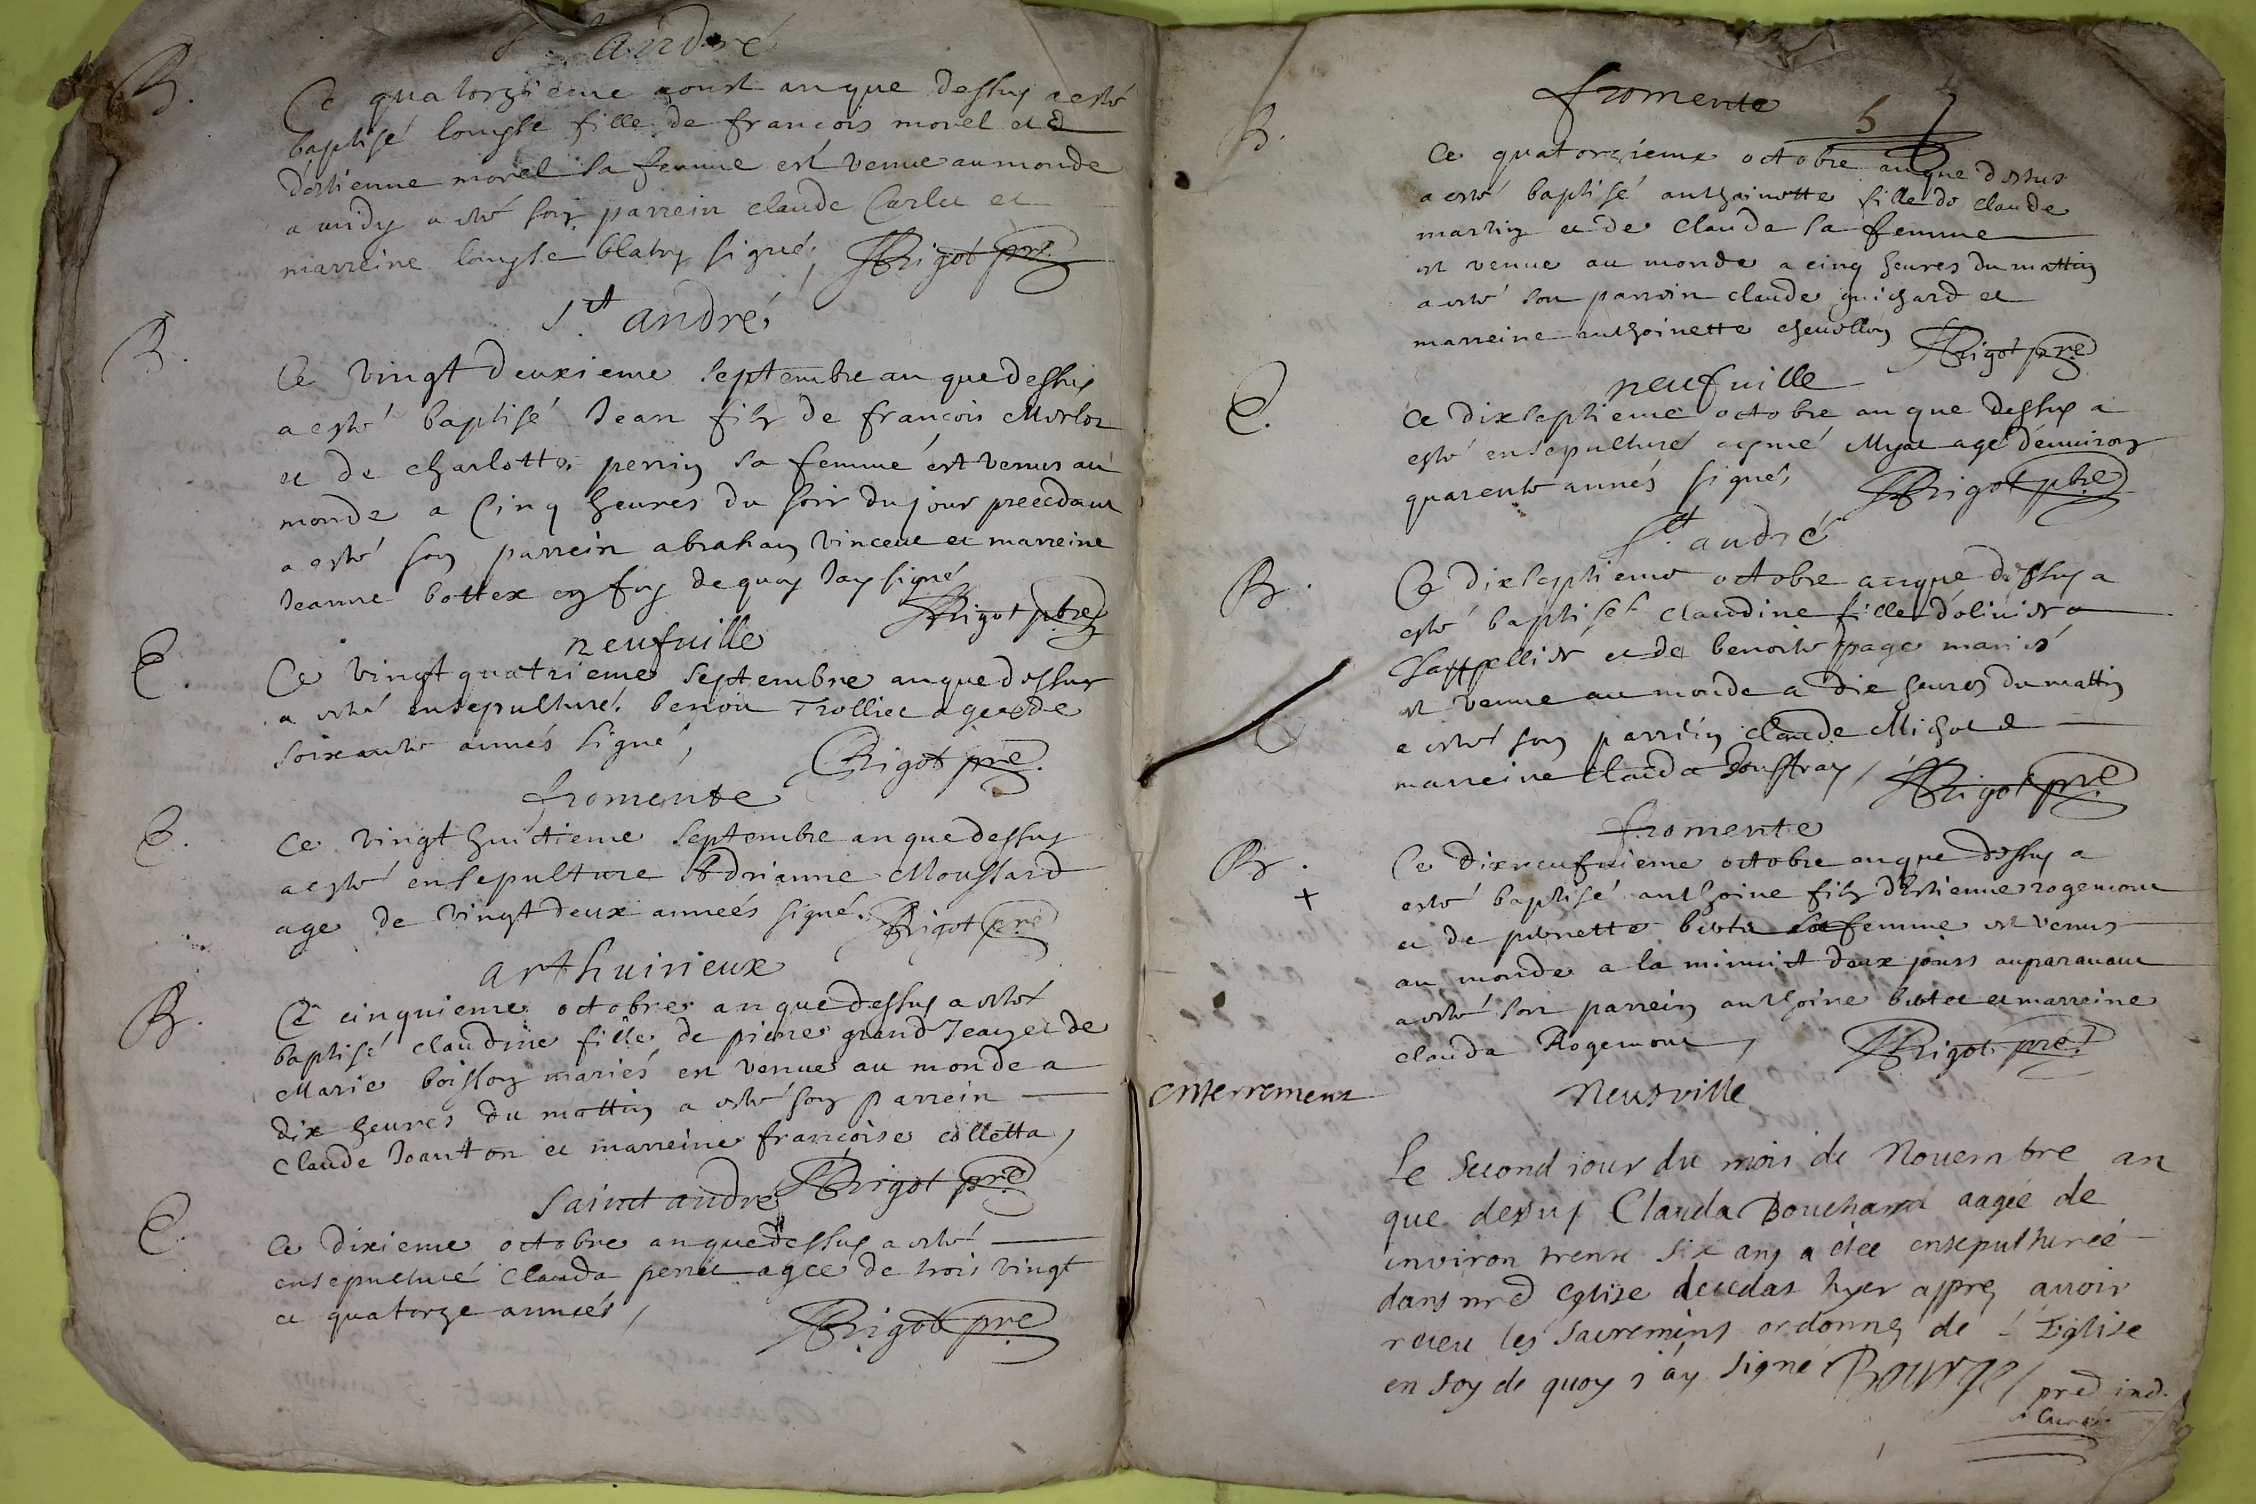 St André
B.
Ce quatorzieme aoust an que dessus a esté
baptisé louyse fille de francois morel et
d'estienne morel sa femme est venue au monde
a midy a esté son parrein claude Carlu et
marreine louyse blatry signé, Rigot pre
St andré
B.
Ce vingt deuxieme septembre an que dessus
a esté baptisé Jean filz de francois Morlor
et de charlotte perrin sa femme est venus au
monde a Cinq heures du soir du jour precedant
a esté son parrein abraham vincent et marreine
Jeanne bottex en foy de quoy Jay signé
Rigot pbre
neufuille
E.
Ce vingt quatrieme septembre an que dessus
a esté ensepulturé benoit Trolliet agee de
soixante annés signé, Rigot pre.
fromente
E.
Ce vingt huitieme septembre an que dessus
a esté ensepulture Adrianne Moussard
age de vingt deux anneés signé. Rigot pre
arthuirieux
B.
Ce cinquieme octobre an que dessus a esté
baptisé claudine fille de pierre grand Jean et de
Marie boisson mariés est venue au monde a
dix heures du mattin a esté son parrein
Claude Janton et marreine francoise colletta,
Rigot pre
Saint andré
E.
Ce dixieme octobre an que dessus a esté
ensepulturé Clauda perret agee de trois vingt
et quatorze anneés, Rigot pre
fromente
5
B.
Ce quatorzieme octobre an que dessus
a esté baptisé anthoinette fille de claude
martin et de Clauda sa femme
est venue au monde a cinq heures du mattin
a esté son parrein claude guichard et
marreine anthoinette cheuillon Rigot pre
neufuille
E.
Ce dixseptieme octobre an que dessus a
esté ensepulturé aymé Myat agé d'enuiron
quarente annés signé, Rigot pbre
St andré
B.
Ce dixseptieme octobre an que dessus a
esté baptisé claudine fille d'oliuier
Chappellier et de benoite page mariés
est venue au monde a dix heures du mattin
a esté son parrein claude Michol et
marreine clauda Jouffray, Rigot pre
fromente
B.
+
Ce dixneufuieme octobre an que dessus a
esté baptisé anthoine filz d'Estienne rogemont
et de pernette bertet sa femme est venus
au monde a la minuict deux jours auparauant
a esté son parrein anthoine bertet et marreine
clauda Rogemont, Rigot pre
enterrement
Neufville
Le second iour du mois de Nouembre an
que dessus Clauda Bouchard aagée de
environ trente six ans a étée ensepulturée
dans nre Eglise decedas hyer appres auoir
receu les sacremens ordonnes de l'Eglise
en foy de quoy i'ay signé Bourge pre ind.
Curé